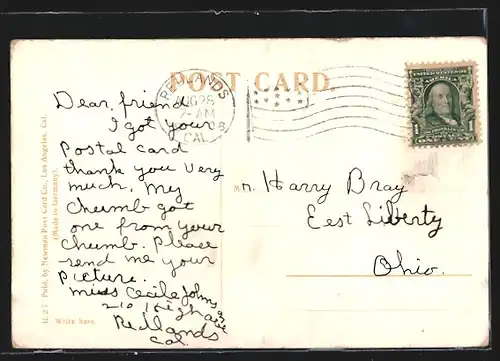 POST CARD.
REDLANDS
AUG 28
7-AM
CAL.
UNITED STATES OF AMERICA
1
Dear friend
I got your
Postal card
thank you very
much. my
chumb got
one from your
chumb. Please
send me your
picture..
miss Cecile Johnson
210 High ave
Redlands
Cal.
Mr. Harry Bray
Eest Liberty
Ohio.
Publ. by Newman Post Card Co., Los Angeles, Cal.
(Made in Germany).
Write here.